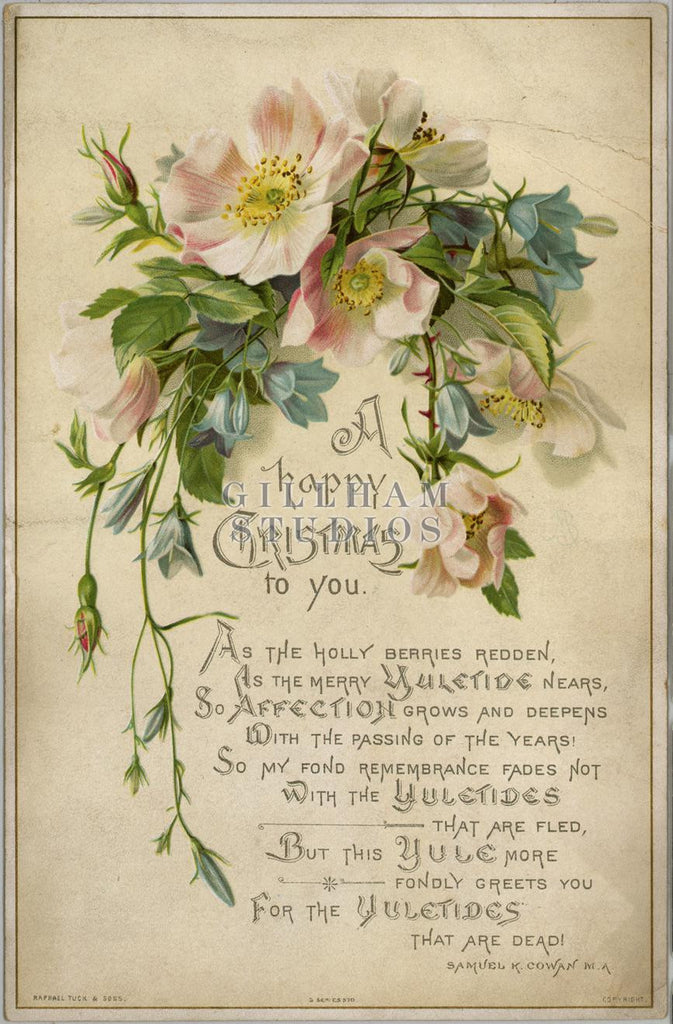 A
happy
Christmas
to you.
GILLHAM
STUDIOS
As the holly berries redden,
As the merry Yuletide nears,
So Affection grows and deepens
With the passing of the years!
So my fond remembrance fades not
With the Yuletides
that are fled,
But this Yule more
fondly greets you
For the Yuletides
that are dead!
Samuel K. Cowan M.A.
RAPHAEL TUCK & SONS.
COPYRIGHT